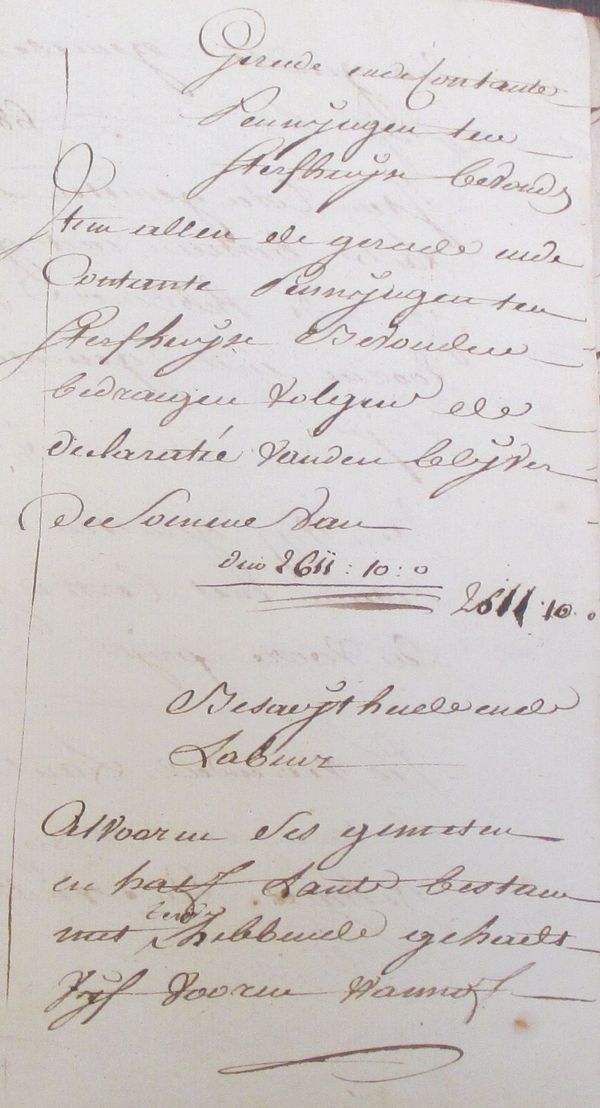 Gereede ende Contante
Pennijngen ten
sterfhuijse bevonden
Item allen de gereede ende
Contante Pennijngen ten
sterfhuijse Bevonden
bedraegen volgens de
declaratie vanden blijver
de Somme van
2611 : 10 : 0
2611 : 10 : 0
Besaeijthede ende
Labeur
Alvooren ses gemeten
en half Lants bestaen
met hebbende gehadt
Vijf Vooren